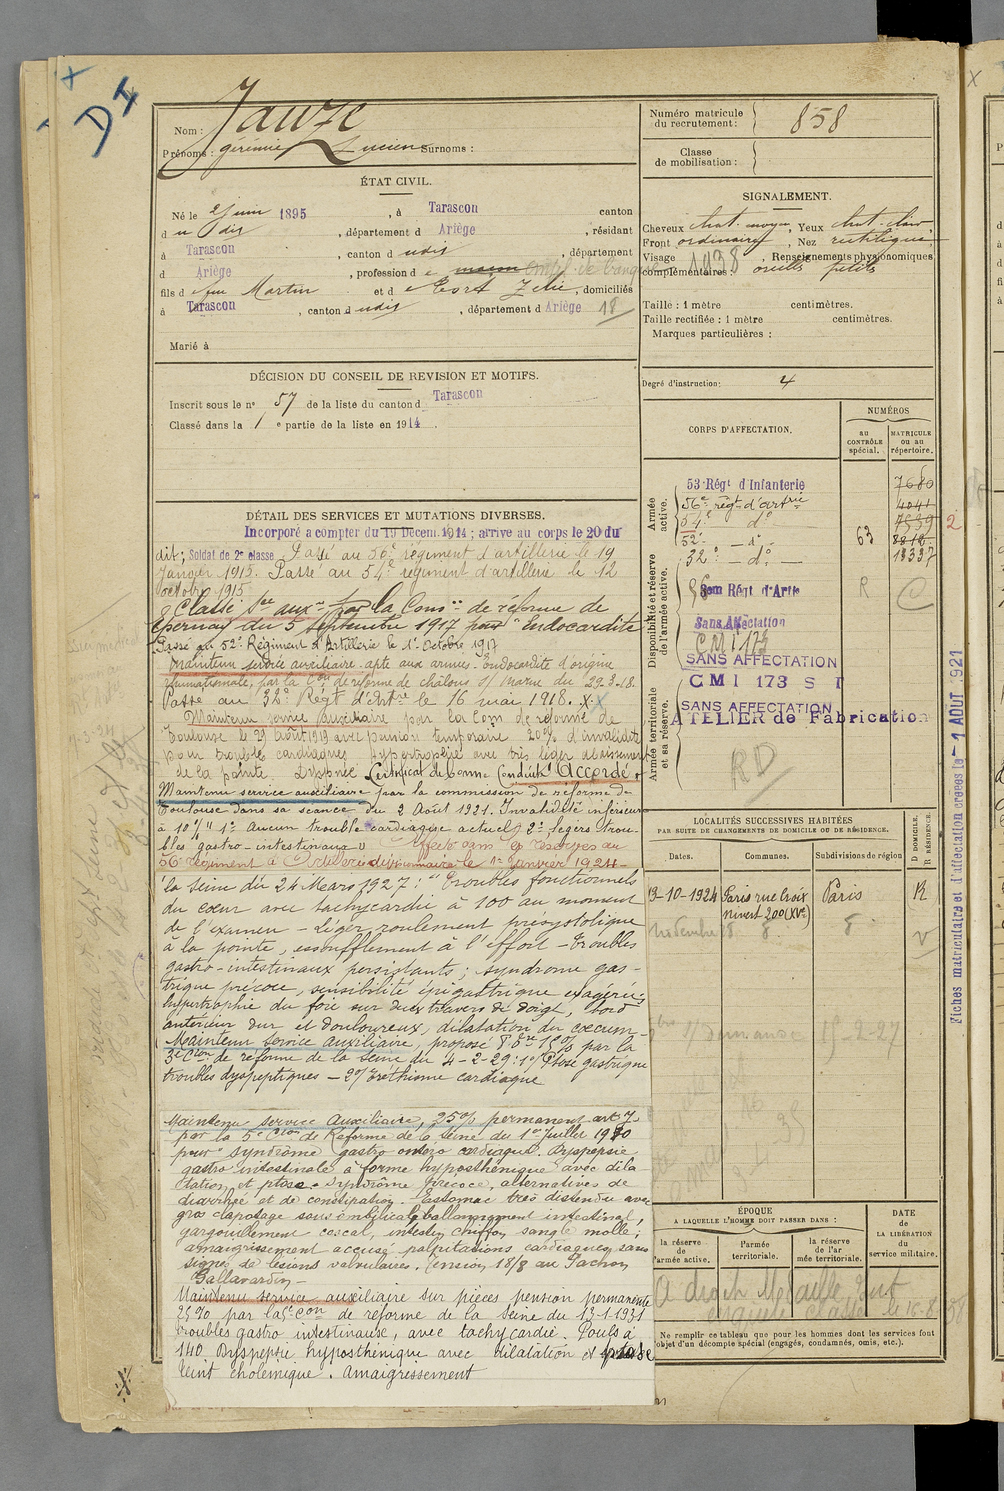 DI
Nom : Jauze
Prénoms : gérémie Lucien Surnoms :
Numéro matricule du recrutement : 858
Classe de mobilisation :
ÉTAT CIVIL.
Né le 2 juin 1895, à Tarascon canton
d u dit, département d Ariège, résidant
à Tarascon, canton d udit, département
d Ariège, profession d e maçon
fils d e feu Martin et d e Zélie, domiciliés
à Tarascon, canton d udit, département d Ariège 18
Marié à
SIGNALEMENT.
Cheveux chat. moyen, Yeux chat. clair
Front ordinaire, Nez rectiligne
Visage, Renseignements physionomiques
complémentaires : oreilles petites
1938
Taille : 1 mètre centimètres.
Taille rectifiée : 1 mètre centimètres.
Marques particulières :
Degré d'instruction : 4
DÉCISION DU CONSEIL DE REVISION ET MOTIFS.
Inscrit sous le n° 57 de la liste du canton d Tarascon
Classé dans la 1e partie de la liste en 1914.
DÉTAIL DES SERVICES ET MUTATIONS DIVERSES.
Incorporé a compter du 19 Decem. 1914; arrive au corps le 20 du
dit; Soldat de 2e classe. Passé au 56e régiment d'artillerie le 19
Janvier 1915. Passé au 54e régiment d'artillerie le 12
octobre 1915
Classé Sce auxre par la Comon de réforme de
Epernay du 5 septembre 1917 pour "Endocardite
Passé au 52e Régiment d'Artillerie le 1er Octobre 1917
Maintenu service auxiliaire. apte aux armées. Endocardite d'origine
rhumatismale, par la Con de réforme de châlons s/ Marne du 29-3-18.
Passé au 32e Régt d'Artie le 16 mai 1918. X.
Maintenu service Auxiliaire par la Com de réforme de
Toulouse le 29 août 1919 avec pension temporaire 20% d'invalidité
pour trouble cardiaques hypertrophie avec très léger abaissement
de la pointe. Dyspnée. Certificat de bonne Conduite "Accordé"
Maintenu service auxiliaire par la commission de réforme de
Toulouse dans sa séance du 2 Août 1921. Invalidité inférieure
à 10% "1° Aucun trouble cardiaque actuel, 2° légers trou-
bles gastro-intestinaux"
56e régiment d'Artillerie divisionnaire le 1er Janvier 1924
la Seine du 24 Mars 1927 : "Troubles fonctionnels
du cœur avec tachycardie à 100 au moment
de l'examen - Léger roulement présystolique
à la pointe, essoufflement à l'effort - Troubles
gastro-intestinaux persistants; syndrome gas-
trique précoce, sensibilité épigastrique exagérée,
hypertrophie du foie sur deux travers de doigt, bord
antérieur dur et douloureux, dilatation du cœcum -
Maintenu Service auxiliaire, proposé 15% par la
3e Cion de réforme de la Seine du 4-2-29: 1°/ Ptose gastrique
troubles dyspeptiques - 2°/ Eréthisme cardiaque
Maintenu service Auxiliaire, 25% permanent art 7
par la 5e Cion de Réforme de la Seine du 1er Juillet 1930
pour "Syndrôme gastro entero cardiaque. Dyspepsie
gastro intestinale à forme hyposthénique avec dila-
tation et ptose - Syndrôme précoce, alternatives de
diarrhée et de constipation. Estomac très distendu avec
gros clapotage sous ombilical, ballonnement intestinal,
gargouillement cœcal, intestin chiffon sangle molle;
amaigrissement accusé palpitations cardiaques sans
signes de lésions valvulaires. Tension 18/8 au Pachon
Gallavardin -
Maintenu service auxiliaire sur pièces pension permanente
25% par la 5e Con de réforme de la Seine du 13-1-1931
troubles gastro intestinaux, avec tachycardie. Pouls à
140 Dyspepsie hyposthénique avec dilatation et ptose
teint cholémique. amaigrissement
CORPS D'AFFECTATION.
NUMÉROS
au CONTRÔLE spécial.
MATRICULE ou au répertoire.
Armée active.
53e Régt d'Infanterie 7680
56e régt d'artrie 4041
54e - do - 7539 2
52e - do - 63
32e - do - 13337
Disponibilité et réserve de l'armée active.
Régt d'Artie R C
Sans Affectation
SANS AFFECTATION
CMI 173 S I
Armée territoriale et sa réserve.
SANS AFFECTATION
ATELIER de Fabrication
RD
Fiches matriculaire et d'affectation créées le - 1 AOUT 1921
LOCALITÉS SUCCESSIVES HABITÉES
PAR SUITE DE CHANGEMENTS DE DOMICILE OU DE RÉSIDENCE.
Dates. Communes. Subdivisions de région D DOMICILE. R RÉSIDENCE.
13-10-1924 Paris rue Croix Paris R
nivert 200 (XVe)
ÉPOQUE
A LAQUELLE L'HOMME DOIT PASSER DANS :
la réserve de l'armée active.
l'armée territoriale.
la réserve de l'armée territoriale.
DATE de LA LIBÉRATION du service militaire.
A droit Médaille
Ne remplir ce tableau que pour les hommes dont les services font
l'objet d'un décompte spécial (engagés, condamnés, omis, etc.).